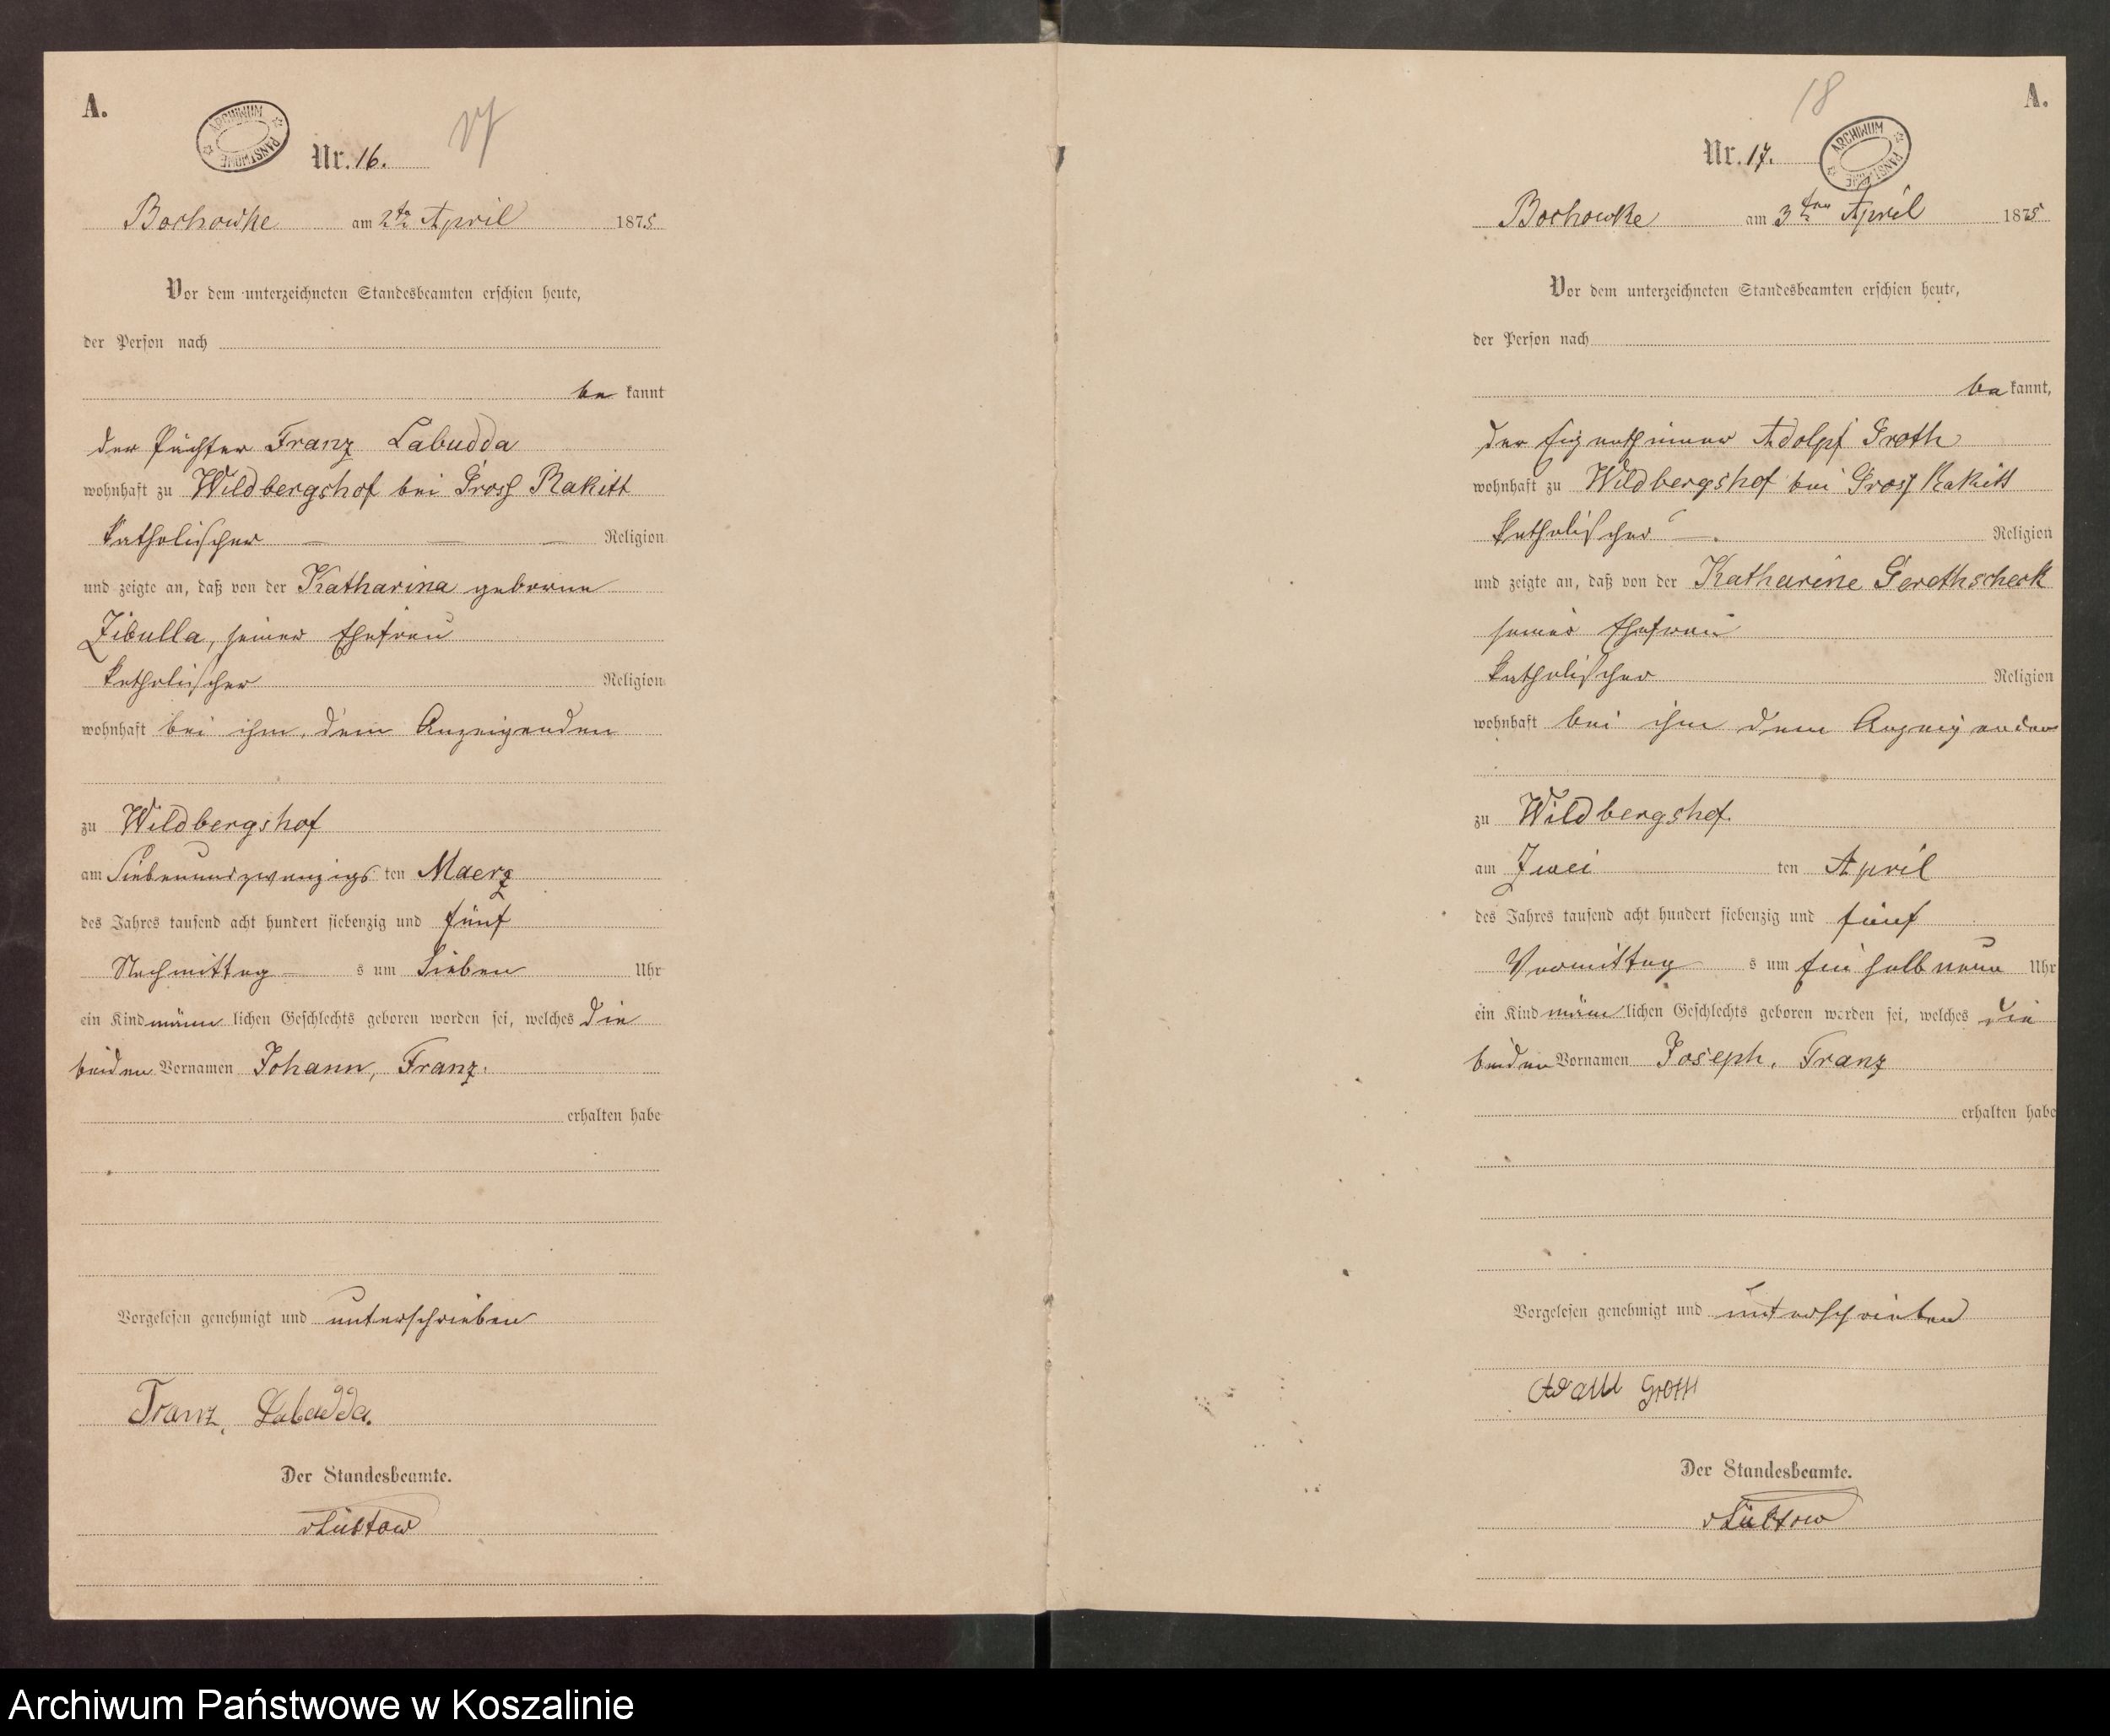 A.
ARCHIWUM PAŃSTWOWE
17
Nr. 16.
Borkowke am 2ten April 1875
Vor dem unterzeichneten Standesbeamten erschien heute,
der Person nach
be kannt
der Pächter Franz Labudda
wohnhaft zu Wildbergshof bei Gross Rakitt
katholischer Religion
und zeigte an, daß von der Katharina geborene
Zibulla, seiner Ehefrau
katholischer Religion
wohnhaft bei ihm, dem Anzeigenden
zu Wildbergshof
am Siebenundzwanzigs ten Maerz
des Jahres tausend acht hundert siebenzig und fünf
Nachmittag s um Sieben Uhr
ein Kind männ lichen Geschlechts geboren worden sei, welches die
beiden Vornamen Johann, Franz.
erhalten habe
Vorgelesen genehmigt und unterschrieben
Franz Labudda.
Der Standesbeamte.
vLübtow
18
A.
Nr. 17.
ARCHIWUM PAŃSTWOWE
Borkowke am 3ten April 1875
Vor dem unterzeichneten Standesbeamten erschien heute,
der Person nach
be kannt,
der Eigenthümer Adolph Groth
wohnhaft zu Wildbergshof bei Gross Rakitt
katholischer Religion
und zeigte an, daß von der Katharine
seiner Ehefrau
katholischer Religion
wohnhaft bei ihm dem Anzeigenden
zu Wildbergshof.
am Zwei ten April
des Jahres tausend acht hundert siebenzig und fünf
Vormittag s um Ein halb neun Uhr
ein Kind männ lichen Geschlechts geboren worden sei, welches die
beiden Vornamen Joseph, Franz
erhalten habe
Vorgelesen genehmigt und unterschrieben
Groth
Der Standesbeamte.
vLübtow
Archiwum Państwowe w Koszalinie